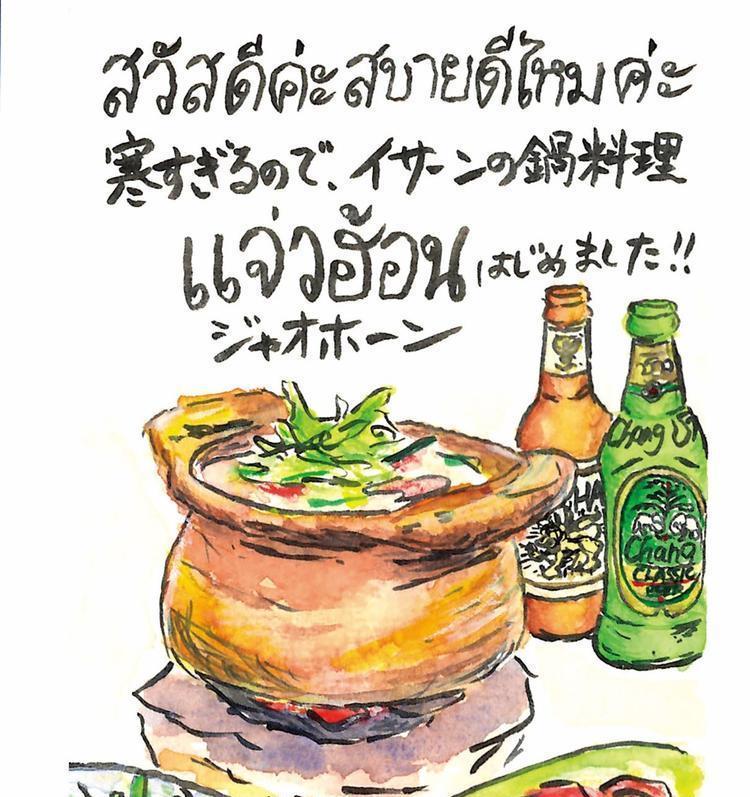 สวัสดีค่ะสบายดีไหมค่ะ
寒すぎるので、イサーンの鍋料理
แจ่วฮ้อน はじめました!!
ジャオホーン
Chang
HA
Chang
CLASSIC